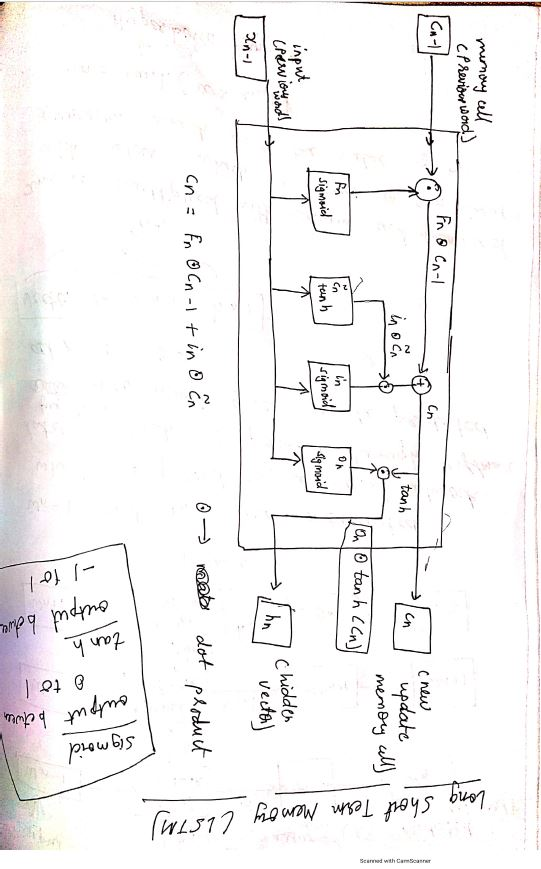 Long Short Term Memory (LSTM)
Cn-1
memory cell
(Previous word)
xn-1
input
(Previous word)
Fn
sigmoid
Fn ⊙ Cn-1
C̃n
tanh
in ⊙ C̃n
in
sigmoid
+
Cn
On
sigmoid
tanh
On ⊙ tanh (Cn)
Cn
(new
update
memory cell)
hn
(hidden
vector)
Cn = Fn ⊙ Cn-1 + in ⊙ C̃n
⊙ → dot product
sigmoid
output
0 to 1
tanh
output
-1 to 1
Scanned with CamScanner